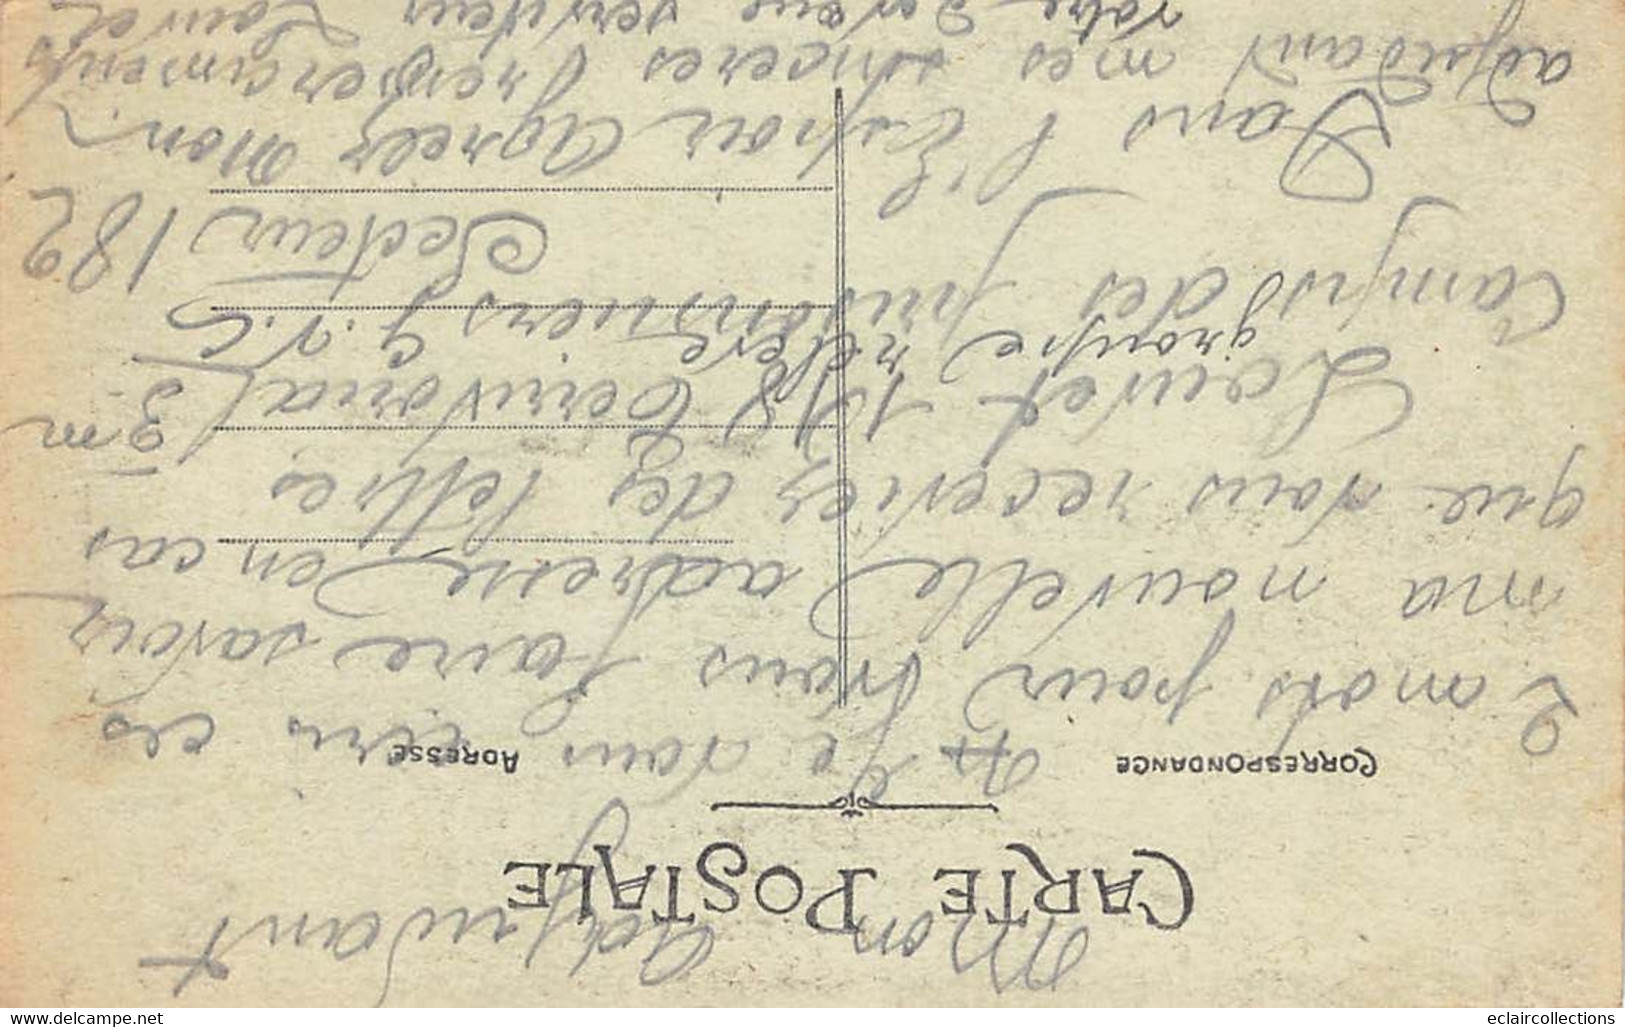 Mon adjudant
CARTE POSTALE
CORRESPONDANCE
ADRESSE
Je vous ecris ces
2 mots pour vous faire savoir
ma nouvelle adresse en cas
que vous receviez des lettres
Louvet 18 territorial 3 m
groupe relève G.V.C
Camps des prisonniers Secteur 182
Dans l'Espoir Agreez Mon
adjudant mes sinceres remerciments
Votre Devoué serviteur Louvet
www.delcampe.net
eclaircollections